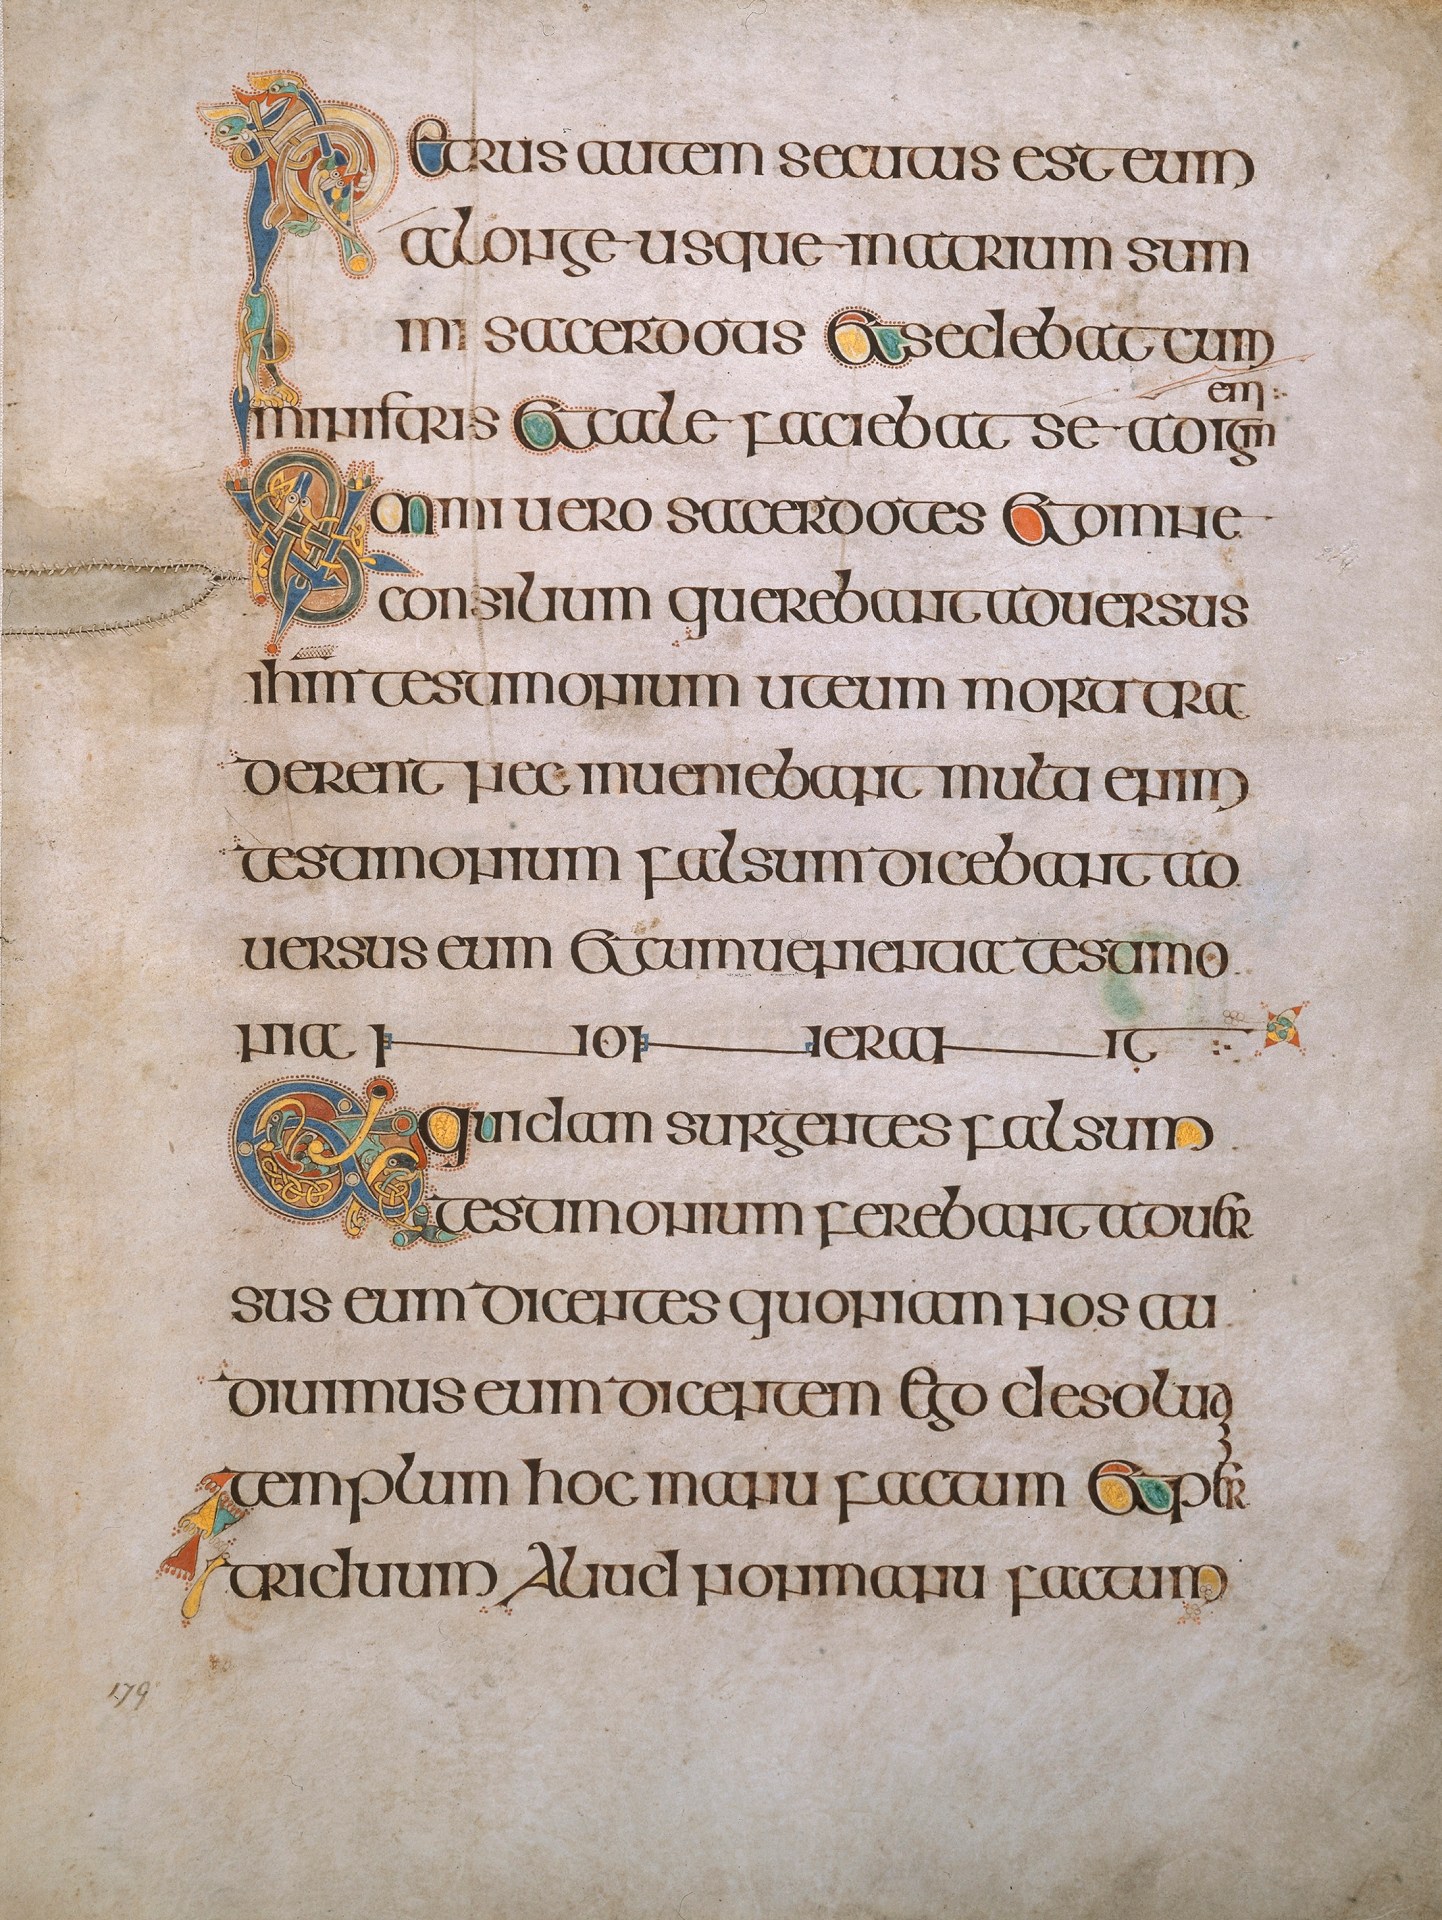 Petrus autem secutus est eum
a longe usque in atrium sum
mi sacerdotis Et sedebat cum
ministris Et cale faciebat se ad ign
em
Summi uero sacerdotes Et omne
consilium querebant aduersus
ihm testimonium ut eum morti tra
derent nec inueniebant multi enim
testimonium falsum dicebant ad
uersus eum Et cumuenientia testimo
nia n non erant
Et quidam surgentes falsum
testimonium ferebant aduer
sus eum dicentes quoniam nos au
diuimus eum dicentem Ego desoluam
templum hoc manu factum Et per
triduum Aliud non manu factum
179